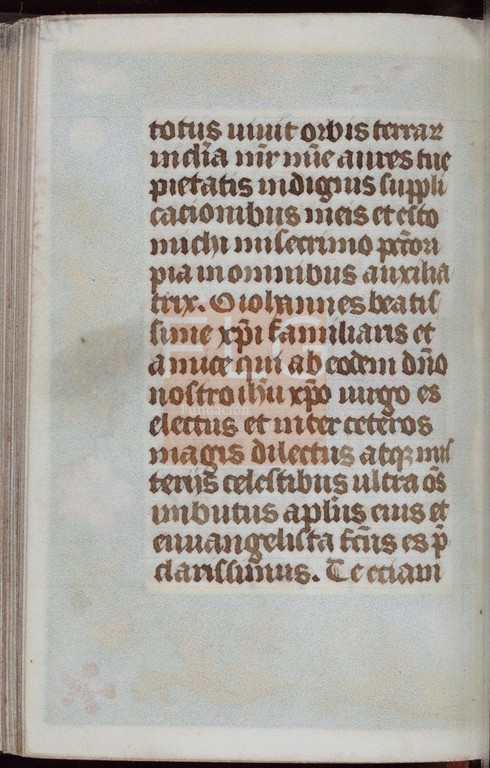 totus viuit orbis terrar̄
inclīa mr̄ mīe aures tue
pietatis indignis suppli
cationibus meis et esto
michi miserrimo pctōri
pia in omnibus auxilia
trix. O iohannes beatis
sime xp̄i familiaris et
amice qui ab eodem dn̄o
nostro ihū xp̄o uirgo es
electus et inter ceteros
magis dilectus atq̄ mis
teriis celestibus ultra ōs
imbutus apl̄us eius et
euuangelista fc̄us es p̄
clarissimus. Te eciam
Fundación